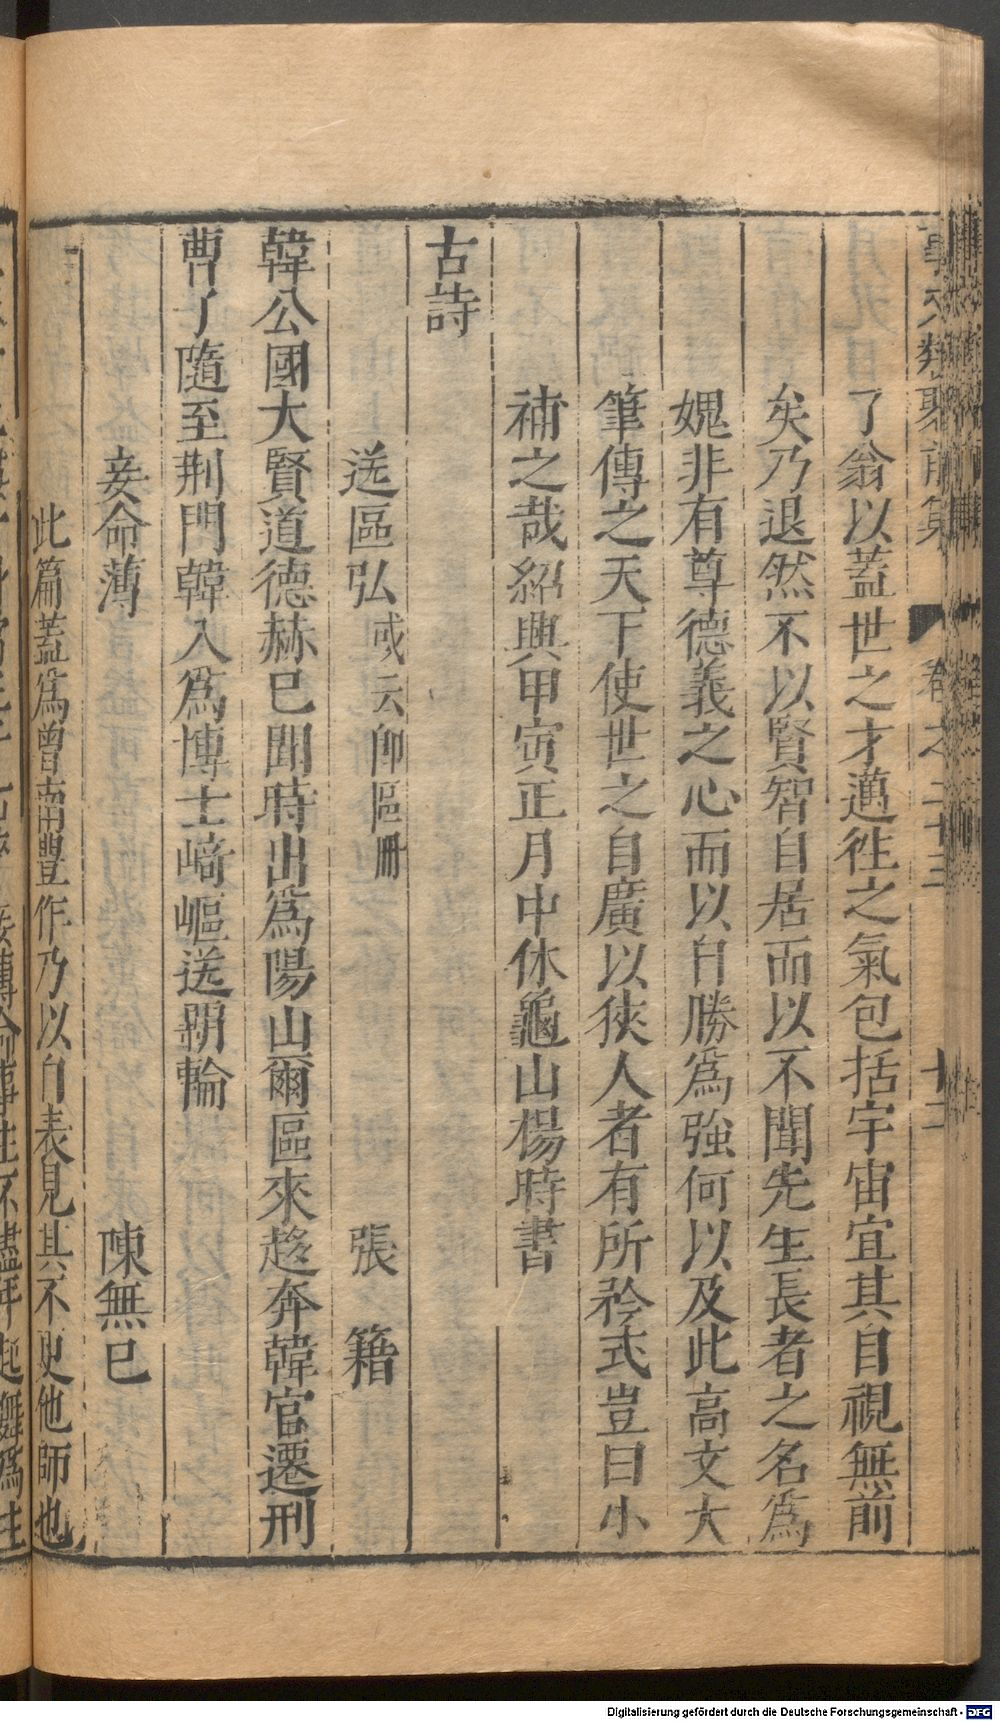 事文類聚前集 卷之二十三 十二
了翁以蓋世之才邁徃之氣包括宇宙宜其自視無前
矣乃退然不以賢智自居而以不聞先生長者之名爲
媿非有尊德義之心而以自勝爲強何以及此高文大
筆傳之天下使世之自廣以狹人者有所矜式豈曰小
補之哉紹興甲寅正月中休龜山楊時書
古詩
送區弘或云卽區冊 張籍
韓公國大賢道德赫巳聞時出爲陽山爾區來趍奔韓官遷刑
曹了隨至荆門韓入爲博士崎嶇送羁輪
妾命薄 陳無巳
此篇蓋爲曾南豐作乃以自表見其不更他師也
Digitalisierung gefördert durch die Deutsche Forschungsgemeinschaft - DFG